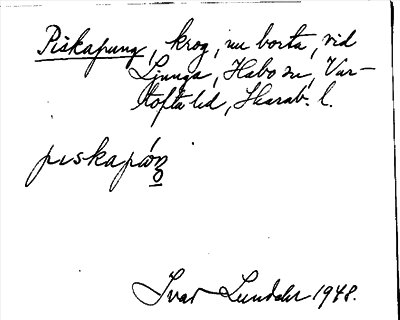 Piskapung, krog, nu borta, vid
Ljunga, Habo sn, Var-
tofta hd, Skarab. l.
piskapáŋ
Ivar Lundahl 1948.